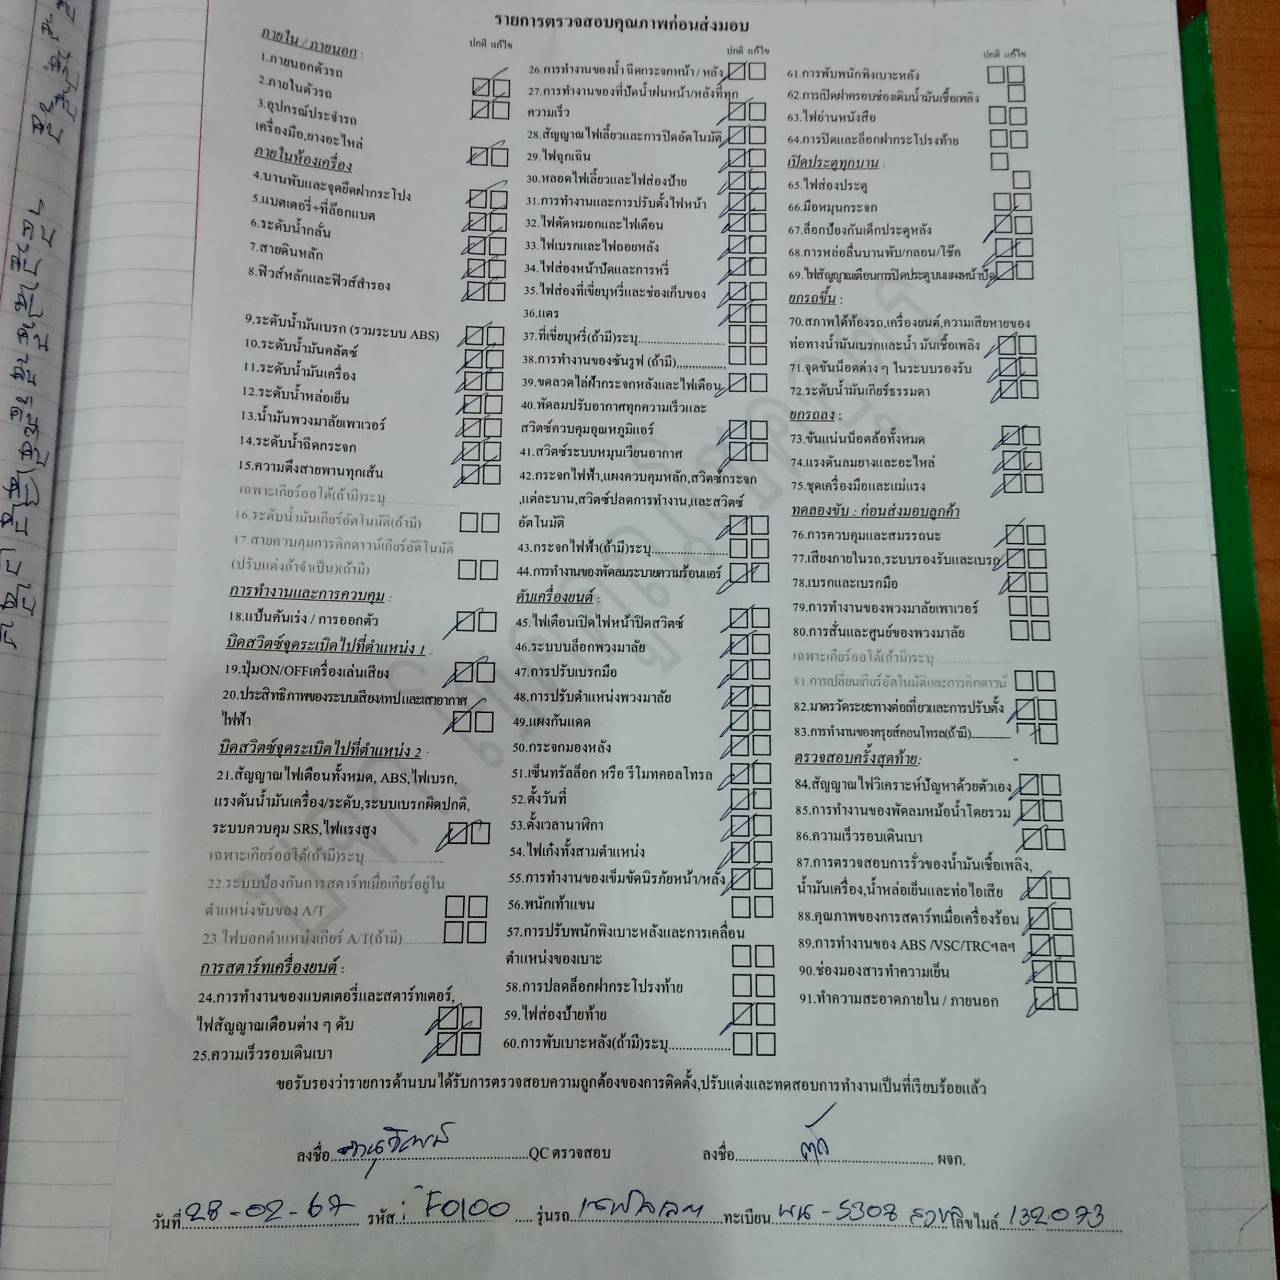 รายการตรวจสอบคุณภาพก่อนส่งมอบ
ภายใน / ภายนอก :
ปกติ แก้ไข
1.ภายนอกตัวรถ
2.ภายในตัวรถ
3.อุปกรณ์ประจำรถ
เครื่องมือ,ยางอะไหล่
ภายในห้องเครื่อง
4.บานพับและจุดยึดฝากระโปง
5.แบตเตอรี่+ที่ล็อกแบต
6.ระดับน้ำกลั่น
7.สายดินหลัก
8.ฟิวส์หลักและฟิวส์สำรอง
9.ระดับน้ำมันเบรก (รวมระบบ ABS)
10.ระดับน้ำมันคลัตซ์
11.ระดับน้ำมันเครื่อง
12.ระดับน้ำหล่อเย็น
13.น้ำมันพวงมาลัยเพาเวอร์
14.ระดับน้ำฉีดกระจก
15.ความตึงสายพานทุกเส้น
เฉพาะเกียร์ออโต้(ถ้ามี)ระบุ
16.ระดับน้ำมันเกียร์อัตโนมัติ(ถ้ามี)
17.สายควบคุมการคิกดาวน์เกียร์อัตโนมัติ
(ปรับแต่งถ้าจำเป็น)(ถ้ามี)
การทำงานและการควบคุม :
18.แป้นคันเร่ง / การออกตัว
บิดสวิตซ์จุดระเบิดไปที่ตำแหน่ง 1 :
19.ปุ่มON/OFFเครื่องเล่นเสียง
20.ประสิทธิภาพของระบบเสียง/เทป และเสาอากาศ
ไฟฟ้า
บิดสวิตซ์จุดระเบิดไปที่ตำแหน่ง 2 :
21.สัญญาณไฟเตือนทั้งหมด, ABS,ไฟเบรก,
แรงดันน้ำมันเครื่อง/ระดับ,ระบบเบรกผิดปกติ,
ระบบควบคุม SRS,ไฟแรงสูง
เฉพาะเกียร์ออโต้(ถ้ามี)ระบุ
22.ระบบป้องกันการสตาร์ทเมื่อเกียร์อยู่ใน
ตำแหน่งขับของ A/T
23.ไฟบอกตำแหน่งเกียร์ A/T(ถ้ามี)
การสตาร์ทเครื่องยนต์ :
24.การทำงานของแบตเตอรี่และสตาร์ทเตอร์,
ไฟสัญญาณเตือนต่าง ๆ ดับ
25.ความเร็วรอบเดินเบา
ปกติ แก้ไข
26.การทำงานของน้ำ ฉีดกระจกหน้า / หลัง
27.การทำงานของที่ปัดน้ำฝนหน้า/หลังที่ทุก
ความเร็ว
28.สัญญาณไฟเลี้ยวและการปิดอัตโนมัติ
29.ไฟฉุกเฉิน
30.หลอดไฟเลี้ยวและไฟส่องป้าย
31.การทำงานและการปรับตั้งไฟหน้า
32.ไฟตัดหมอกและไฟเตือน
33.ไฟเบรกและไฟถอยหลัง
34.ไฟส่องหน้าปัดและการหรี่
35.ไฟส่องที่เขี่ยบุหรี่และช่องเก็บของ
36.แตร
37.ที่เขี่ยบุหรี่(ถ้ามี)ระบุ
38.การทำงานของซันรูฟ (ถ้ามี)
39.ขดลวดไล่ฝ้ากระจกหลังและไฟเตือน
40.พัดลมปรับอากาศทุกความเร็วและ
สวิตซ์ควบคุมอุณหภูมิแอร์
41.สวิตซ์ระบบหมุนเวียนอากาศ
42.กระจกไฟฟ้า,แผงควบคุมหลัก,สวิตซ์กระจก
,แต่ละบาน,สวิตซ์ปลดการทำงาน,และสวิตซ์
อัตโนมัติ
43.กระจกไฟฟ้า(ถ้ามี)ระบุ
44.การทำงานของพัดลมระบายความร้อนแอร์
ดับเครื่องยนต์ :
45.ไฟเตือนเปิดไฟหน้าปิดสวิตซ์
46.ระบบบล็อกพวงมาลัย
47.การปรับเบรกมือ
48.การปรับตำแหน่งพวงมาลัย
49.แผงกันแดด
50.กระจกมองหลัง
51.เซ็นทรัลล็อก หรือ รีโมทคอลโทรล
52.ตั้งวันที่
53.ตั้งเวลานาฬิกา
54.ไฟเก๋งทั้งสามตำแหน่ง
55.การทำงานของเข็มขัดนิรภัยหน้า/หลัง
56.พนักเท้าแขน
57.การปรับพนักพิงเบาะหลังและการเคลื่อน
ตำแหน่งของเบาะ
58.การปลดล็อกฝากระโปรงท้าย
59.ไฟส่องป้ายท้าย
60.การพับเบาะหลัง(ถ้ามี)ระบุ
ปกติ แก้ไข
61.การพับพนักพิงเบาะหลัง
62.การเปิดฝาครอบช่องเติมน้ำมันเชื้อเพลิง
63.ไฟอ่านหนังสือ
64.การปิดและล็อกฝากระโปรงท้าย
เปิดประตูทุกบาน :
65.ไฟส่องประตู
66.มือหมุนกระจก
67.ล็อกป้องกันเด็กประตูหลัง
68.การหล่อลื่นบานพับ/กลอน/โช๊ค
69.ไฟสัญญาณเตือนการปิดประตูบนแผงหน้าปัด
ยกรถขึ้น :
70.สภาพใต้ท้องรถ,เครื่องยนต์,ความเสียหายของ
ท่อทางน้ำมันเบรกและน้ำ มันเชื้อเพลิง
71.จุดขันน็อตต่าง ๆ ในระบบรองรับ
72.ระดับน้ำมันเกียร์ธรรมดา
ยกรถลง :
73.ขันแน่นน็อตล้อทั้งหมด
74.แรงดันลมยางและอะไหล่
75.ชุดเครื่องมือและแม่แรง
ทดลองขับ : ก่อนส่งมอบลูกค้า
76.การควบคุมและสมรรถนะ
77.เสียงภายในรถ,ระบบรองรับและเบรก
78.เบรกและเบรกมือ
79.การทำงานของพวงมาลัยเพาเวอร์
80.การสั่นและศูนย์ของพวงมาลัย
เฉพาะเกียร์ออโต้(ถ้ามี)ระบุ
81.การเปลี่ยนเกียร์อัตโนมัติและการคิกดาวน์
82.มาตรวัดระยะทางต่อเที่ยวและการปรับตั้ง
83.การทำงานของครุยส์คอนโทรล(ถ้ามี)
ตรวจสอบครั้งสุดท้าย:
84.สัญญาณไฟวิเคราะห์ปัญหาด้วยตัวเอง
85.การทำงานของพัดลมหม้อน้ำโดยรวม
86.ความเร็วรอบเดินเบา
87.การตรวจสอบการรั่วของน้ำมันเชื้อเพลิง,
น้ำมันเครื่อง,น้ำหล่อเย็นและท่อไอเสีย
88.คุณภาพของการสตาร์ทเมื่อเครื่องร้อน
89.การทำงานของ ABS /VSC/TRCฯลฯ
90.ช่องมองสารทำความเย็น
91.ทำความสะอาดภายใน / ภายนอก
ขอรับรองว่ารายการด้านบนได้รับการตรวจสอบความถูกต้องของการติดตั้ง,ปรับแต่งและทดสอบการทำงานเป็นที่เรียบร้อยแล้ว
ลงชื่อ QC ตรวจสอบ ลงชื่อ ผจก.
วันที่ 28-02-67 รหัส F0100 รุ่นรถ ทะเบียน 5308 เลขไมล์ 132073